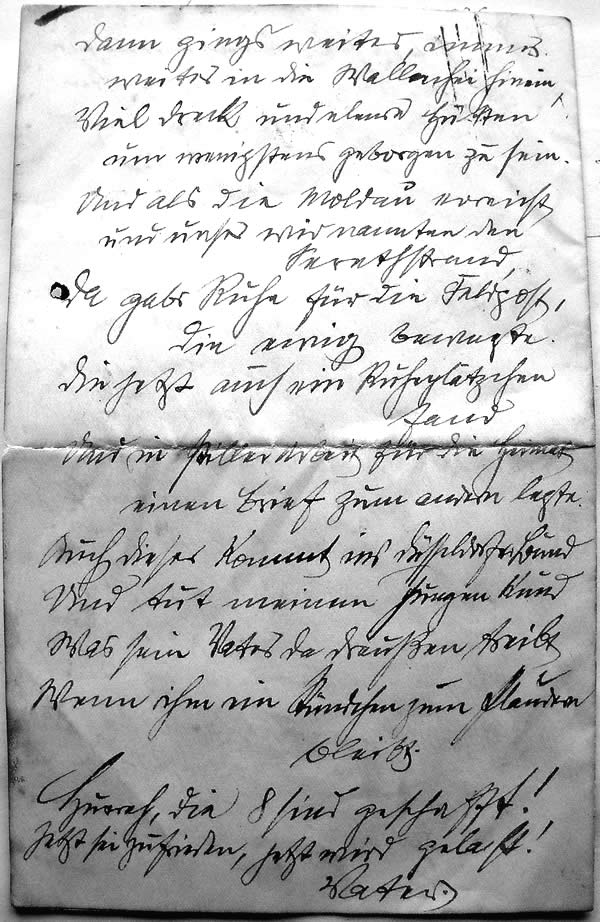 Dann gings weiter, immer
weiter in die Wallachei hinein,
Viel Dreck und elende Hütten
um wenigstens geborgen zu sein.
Und als die Moldau erreicht
und unser wir nannten den
Serethstrand,
Da gabs Ruhe für die Feldpost,
die ewig bewegte.
Die jetzt auch ein Ruheplätzchen
fand
Und in stiller Arbeit für die Heimat
einen Brief zum andern legte.
Auch dieser kommt ins Düsseldorfer Bund
Und tut meinem Jungen kund
Was sein Vater da draußen treibt
Wenn ihm ein Stündchen zum Plaudern
bleibt.
Hurrah, die 8 sind geschafft!
Jetzt sei zufrieden, jetzt wird gelaft!
Vater.